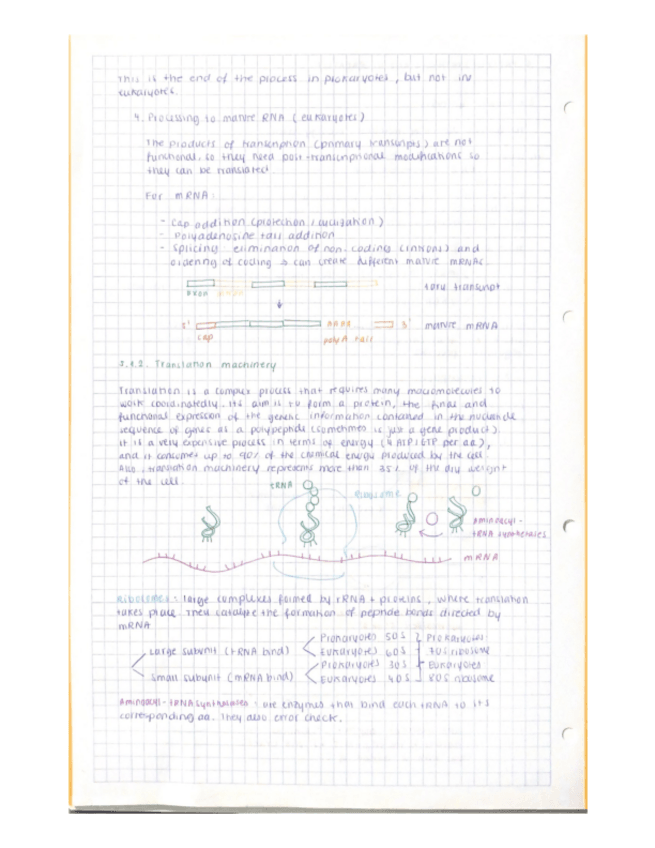 This is the end of the process in prokaryotes, but not in
eukaryotes.
4. Processing to mature RNA (eukaryotes)
The products of transcription (primary transcripts) are not
functional, so they need post-transcriptional modifications so
they can be translated
For mRNA:
- Cap addition (protection, localization)
- Polyadenosine tail addition
- Splicing: elimination of non-coding (introns) and
ordering of coding → can create different mature mRNAs.
exon intron transcript
5' AAAA 3' mature mRNA
cap poly A tail
3.4.2. Translation machinery
Translation is a complex process that requires many macromolecules to
work coordinatedly. Its aim is to form a protein, the final and
functional expression of the genetic information contained in the nucleotide
sequence of genes as a polypeptide (sometimes is just a gene product).
It is a very expensive process in terms of energy (4 ATP/GTP per aa),
and it consumes up to 90% of the chemical energy produced by the cell.
Also, translation machinery represents more than 35% of the dry weight
of the cell.
tRNA
ribosome
aminoacyl-
tRNA synthetases
mRNA
Ribosomes: large complexes formed by rRNA + proteins, where translation
takes place. They catalyse the formation of peptide bonds directed by
mRNA
Large subunit (tRNA bind) Prokaryotes 50S Prokaryotes
Eukaryotes 60S 70S ribosome
Small subunit (mRNA bind) Prokaryotes 30S Eukaryotes
Eukaryotes 40S 80S ribosome
Aminoacyl-tRNA synthetases: are enzymes that bind each tRNA to its
corresponding aa. They also error check.